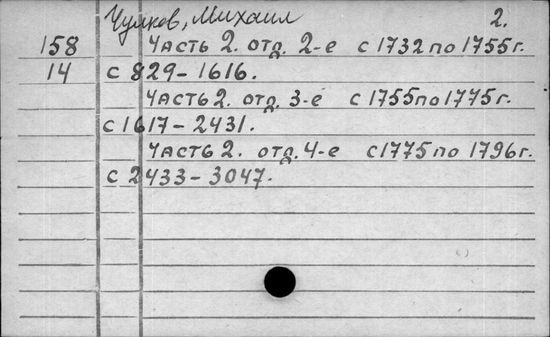 Чулков, Михаил 2.
158 Часть 2. отд. 2-е с 1732 по 1755 г.
14 с 829-1616.
Часть 2. отд. 3-е с 1755 по 1775 г.
с 1617-2431.
Часть 2. отд. 4-е с 1775 по 1796 г.
с 2433-3047.